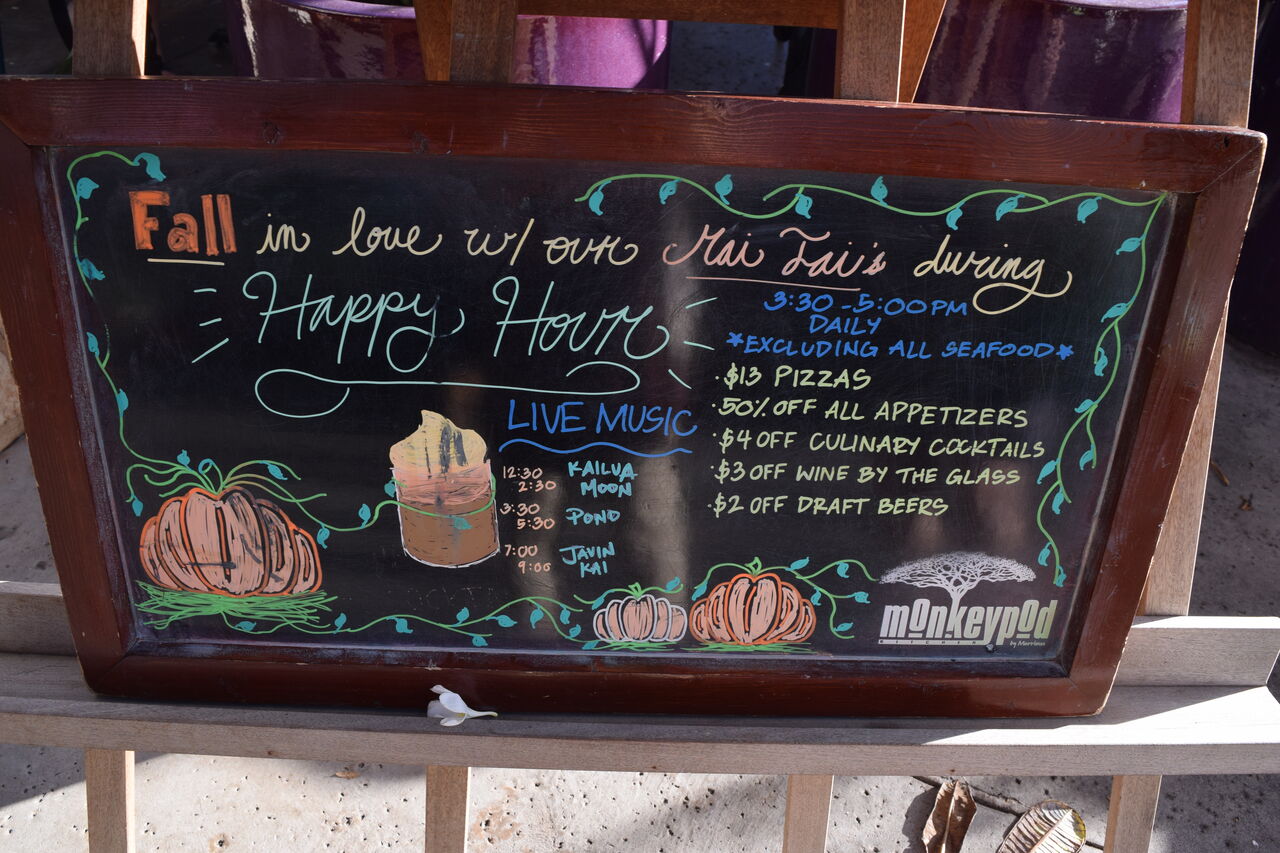 Fall in love w/ our Mai Tai's during
Happy Hour
3:30 - 5:00 PM
DAILY
*EXCLUDING ALL SEAFOOD*
· $13 PIZZAS
· 50% OFF ALL APPETIZERS
· $4 OFF CULINARY COCKTAILS
· $3 OFF WINE BY THE GLASS
· $2 OFF DRAFT BEERS
LIVE MUSIC
12:30 KAILUA
2:30 MOON
3:30 POND
5:30
7:00 JAVIN
9:00 KAI
monkeypod
KITCHEN
by Merriman